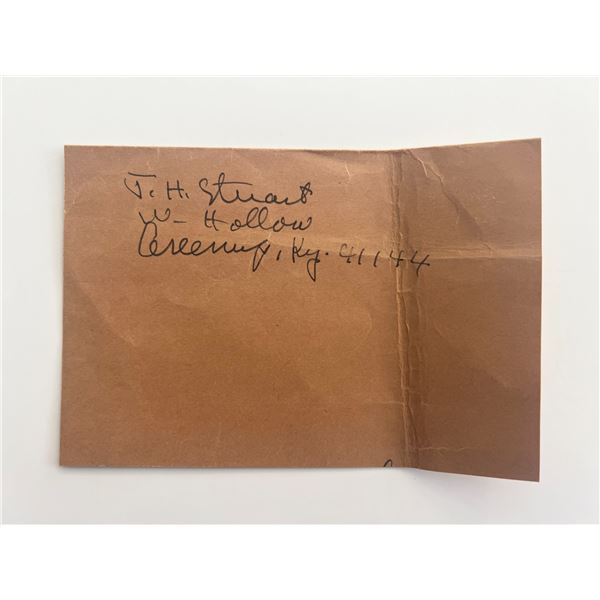 J. H. Stuart
W- Hollow
Greenup, Ky. 41144